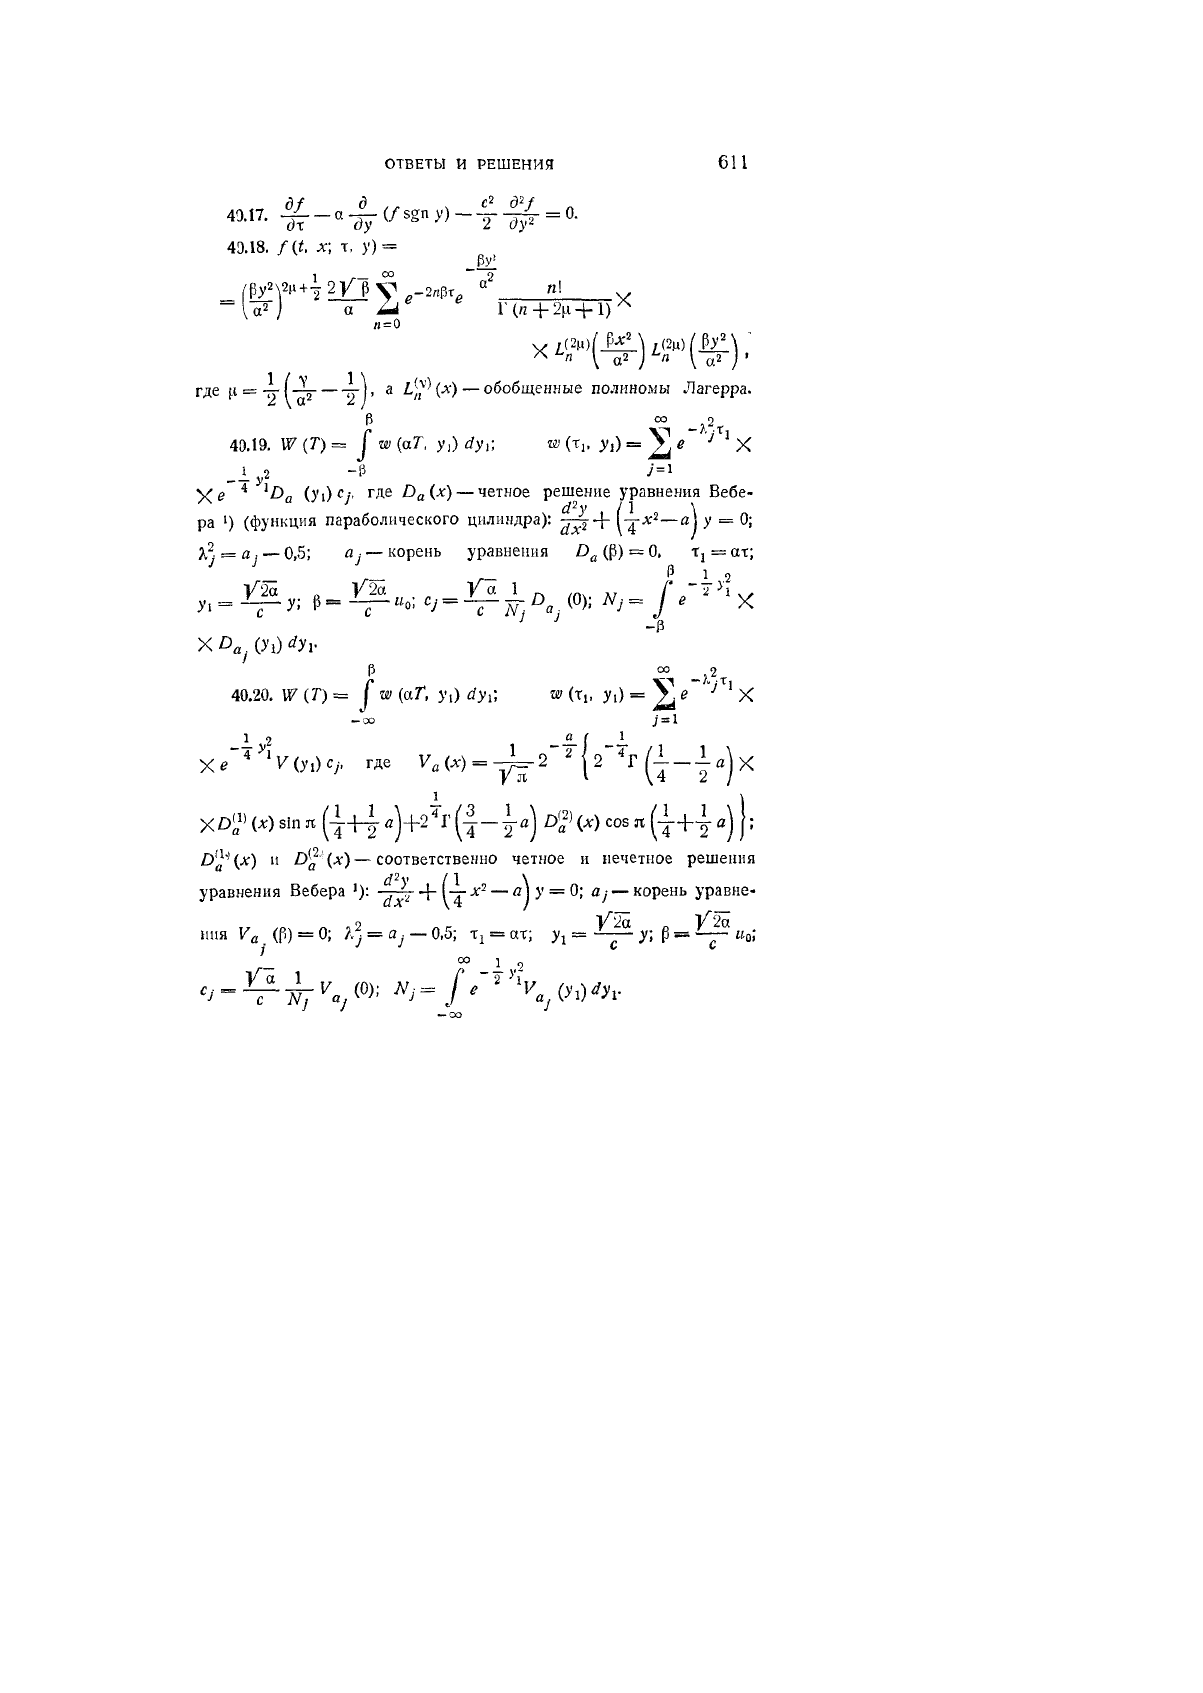 ОТВЕТЫ И РЕШЕНИЯ 611
40.17. ∂f/∂τ — α ∂/∂y (f sgn y) — c²/2 ∂²f/∂y² = 0.
40.18. f (t, x; τ, y) =
= (βy²/α²)^{2μ+1/2} 2√β/α ∑_{n=0}^{∞} e^{−2nβτ} e^{−βy²/α²} n!/Γ (n + 2μ + 1) ×
× L_n^{(2μ)} (βx²/α²) L_n^{(2μ)} (βy²/α²),
где μ = 1/2 (γ/α² — 1/2), а L_n^{(ν)} (x) — обобщенные полиномы Лагерра.
40.19. W (T) = ∫_{−β}^{β} w (αT, y₁) dy₁; w (τ₁, y₁) = ∑_{j=1}^{∞} e^{−λ_j² τ₁} ×
× e^{−1/4 y₁²} D_a (y₁) c_j, где D_a (x) — четное решение уравнения Вебе-
ра ¹) (функция параболического цилиндра): d²y/dx² + (1/4 x² — a) y = 0;
λ_j² = a_j — 0,5; a_j — корень уравнения D_a (β) = 0, τ₁ = ατ;
y₁ = √2α/c y; β = √2α/c u₀; c_j = √α/c 1/N_j D_{a_j} (0); N_j = ∫_{−β}^{β} e^{−1/2 y₁²} ×
× D_{a_j} (y₁) dy₁.
40.20. W (T) = ∫_{−∞}^{β} w (αT, y₁) dy₁; w (τ₁, y₁) = ∑_{j=1}^{∞} e^{−λ_j² τ₁} ×
× e^{−1/4 y₁²} V (y₁) c_j, где V_a (x) = 1/√π 2^{−a/2} {2^{−1/4} Γ (1/4 — 1/2 a) ×
× D_a^{(1)} (x) sin π (1/4 + 1/2 a) + 2^{1/4} Γ (3/4 — 1/2 a) D_a^{(2)} (x) cos π (1/4 + 1/2 a)};
D_a^{(1)} (x) и D_a^{(2)} (x) — соответственно четное и нечетное решения
уравнения Вебера ¹): d²y/dx² + (1/4 x² — a) y = 0; a_j — корень уравне-
ния V_{a_j} (β) = 0; λ_j² = a_j — 0,5; τ₁ = ατ; y₁ = √2α/c y; β = √2α/c u₀;
c_j = √α/c 1/N_j V_{a_j} (0); N_j = ∫_{−∞}^{∞} e^{−1/2 y₁²} V_{a_j} (y₁) dy₁.